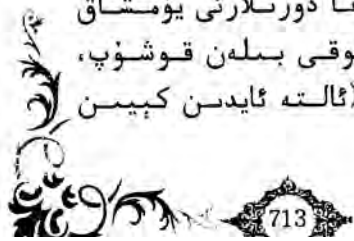 دورىلارنى يۇمشاق
بىلەن قوشۇپ،
ئالتە ئايدىن كېيىن
713